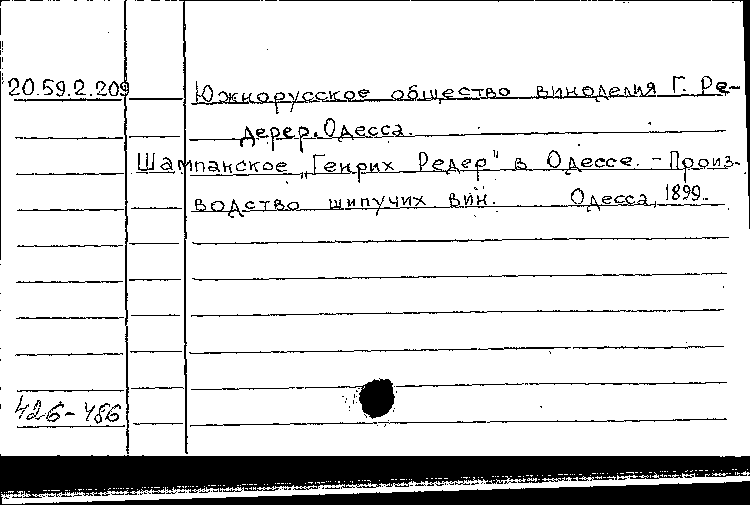 20.59.2.209 Южнорусское общество виноделия Г. Ре-
дерер. Одесса.
Шампанское „Генрих Редер" в Одессе. - Произ-
водство шипучих вин. Одесса, 1899.
426-486